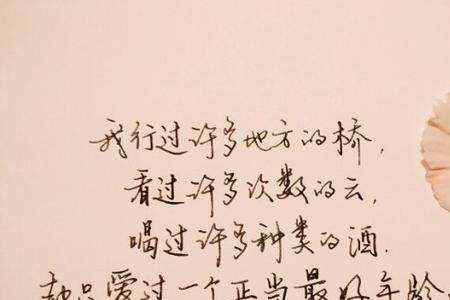 我行过许多地方的桥,
看过许多次数的云,
喝过许多种类的酒.
却只爱过一个正当最好年龄